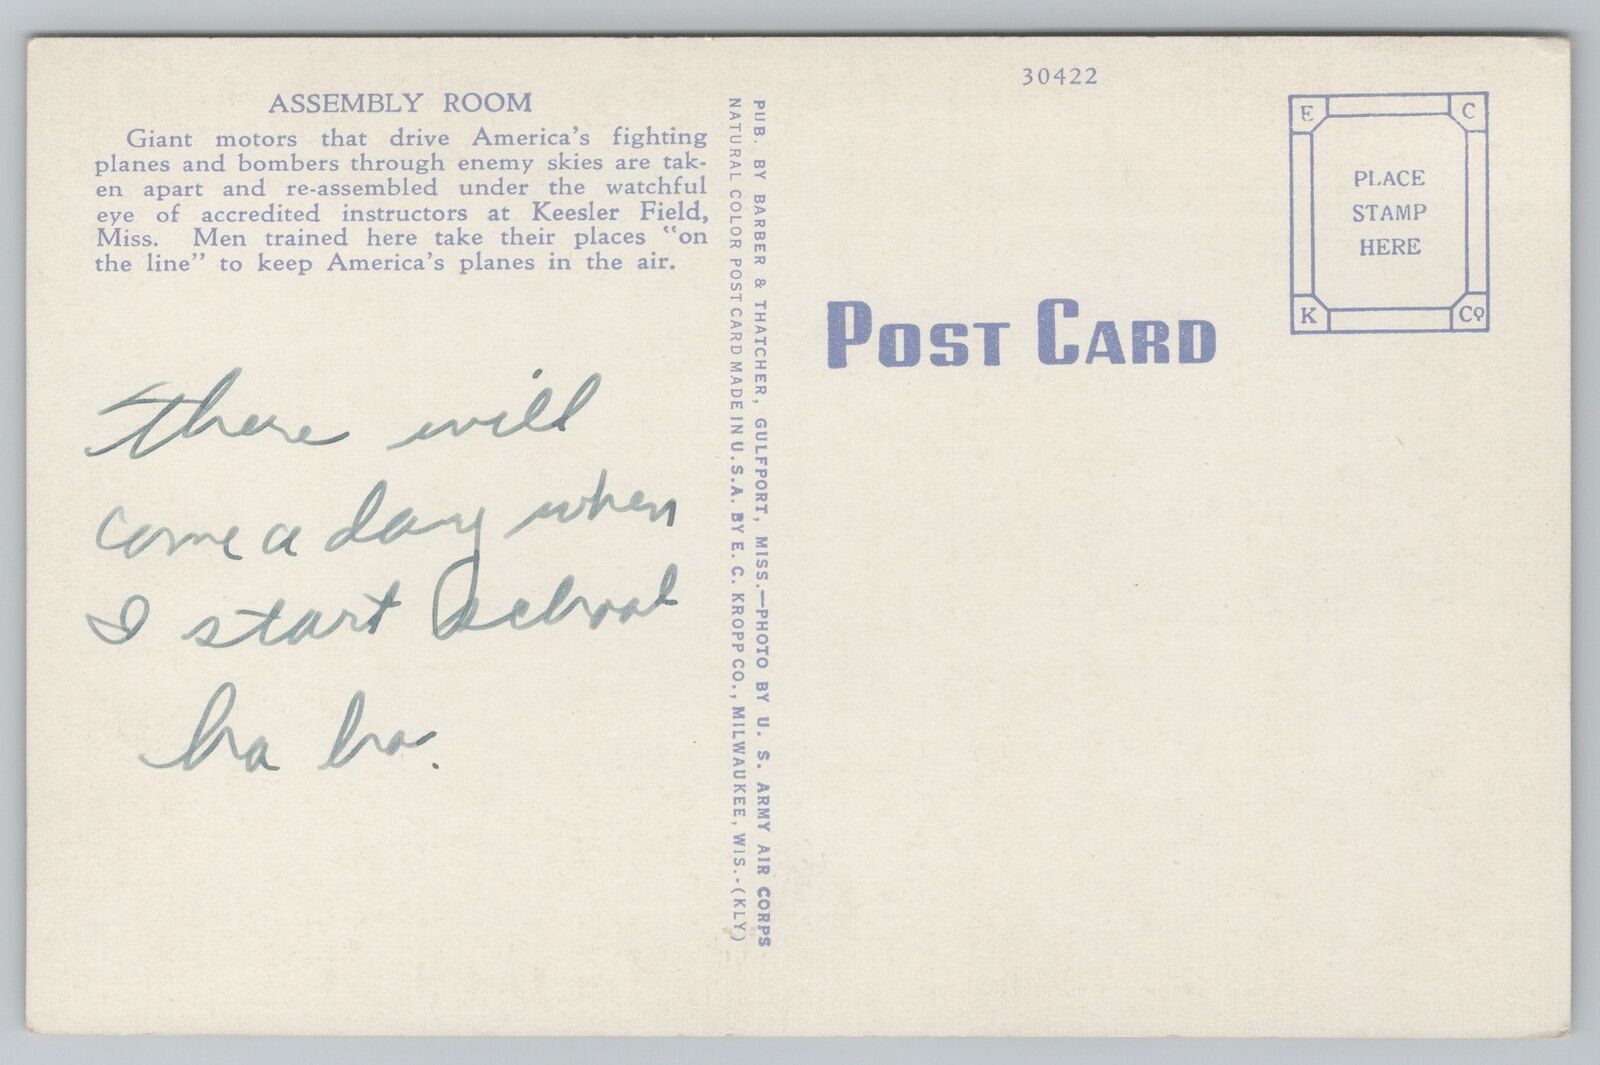 ASSEMBLY ROOM
Giant motors that drive America's fighting
planes and bombers through enemy skies are tak-
en apart and re-assembled under the watchful
eye of accredited instructors at Keesler Field,
Miss. Men trained here take their places "on
the line" to keep America's planes in the air.
there will
come a day when
I start school
ha ha.
PUB. BY BARBER & THATCHER, GULFPORT, MISS.—PHOTO BY U. S. ARMY AIR CORPS
NATURAL COLOR POST CARD MADE IN U.S.A. BY E. C. KROPP CO., MILWAUKEE, WIS.-(KLY)
30422
POST CARD
E C
PLACE
STAMP
HERE
K Co